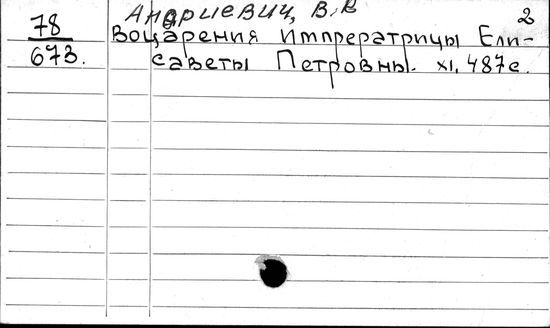 Андриевич, В. В
2
78
673.
Воцарения Импрератрицы Ели-
саветы Петровны. XI, 487с.